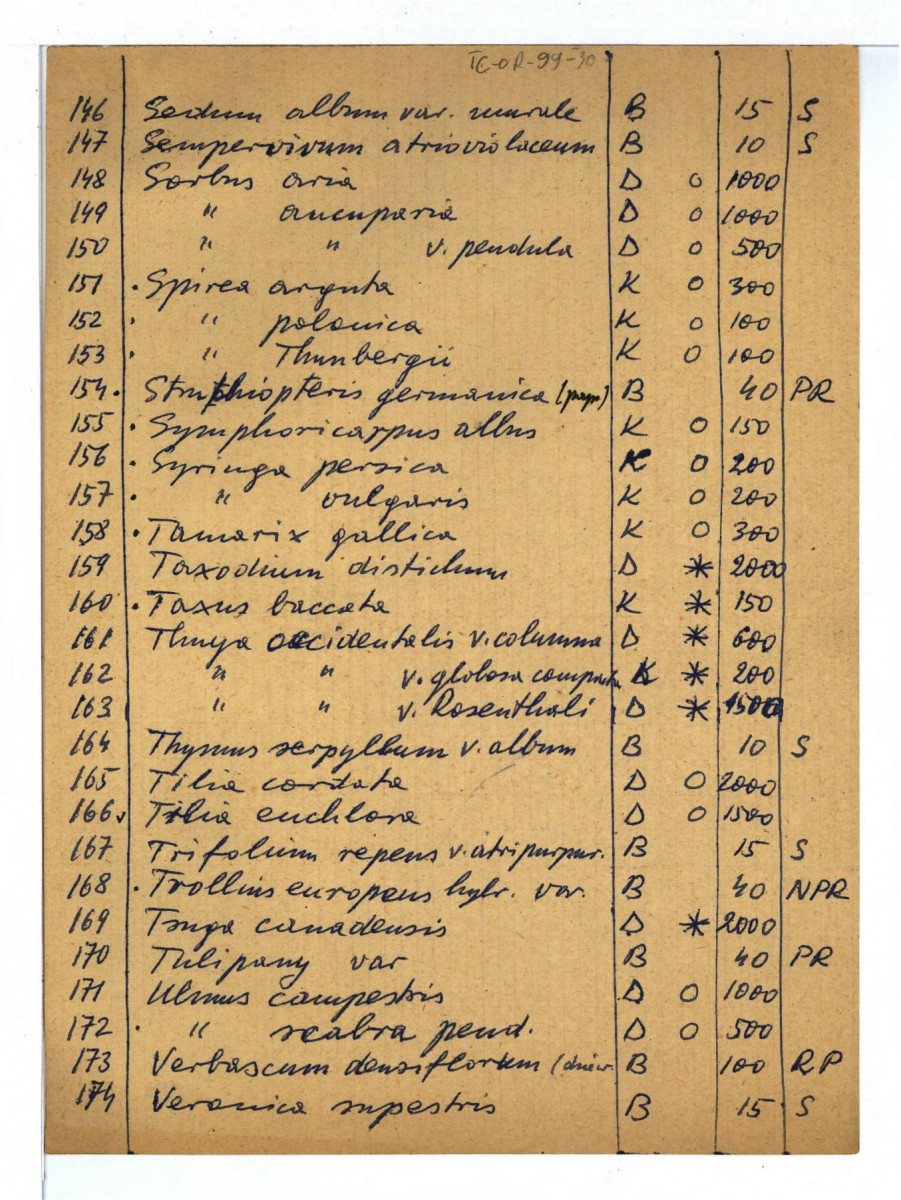 TC-OR-99-30
146 Sedum album var. murale B 15 S
147 Sempervivum atrioviolaceum B 10 S
148 Sorbus aria D o 1000
149 " aucuparia D o 1000
150 " " v. pendula D o 500
151 . Spirea arguta K o 300
152 . " polonica K o 100
153 . " Thunbergii K o 100
154 . Struthiopteris germanica B 40 PR
155 . Symphoricarpus albus K o 150
156 . Syringa persica K o 200
157 . " vulgaris K o 200
158 . Tamarix gallica K o 300
159 Taxodium distichum D * 2000
160 . Taxus baccata K * 150
161 Thuya occidentalis v. columna D * 600
162 " " v. globosa compacta K * 200
163 " " v. Rosenthali D * 1500
164 Thymus serpyllum v. album B 10 S
165 Tilia cordata D o 2000
166 v Tilia euchlora D o 1500
167 Trifolium repens v. atripurpur. B 15 S
168 . Trollius europeus hybr. var. B 40 NPR
169 Tsuga canadensis D * 2000
170 Tulipany var B 40 PR
171 Ulmus campestris D o 1000
172 . " scabra pend. D o 500
173 Verbascum densiflorum B 100 RP
174 Veronica rupestris B 15 S